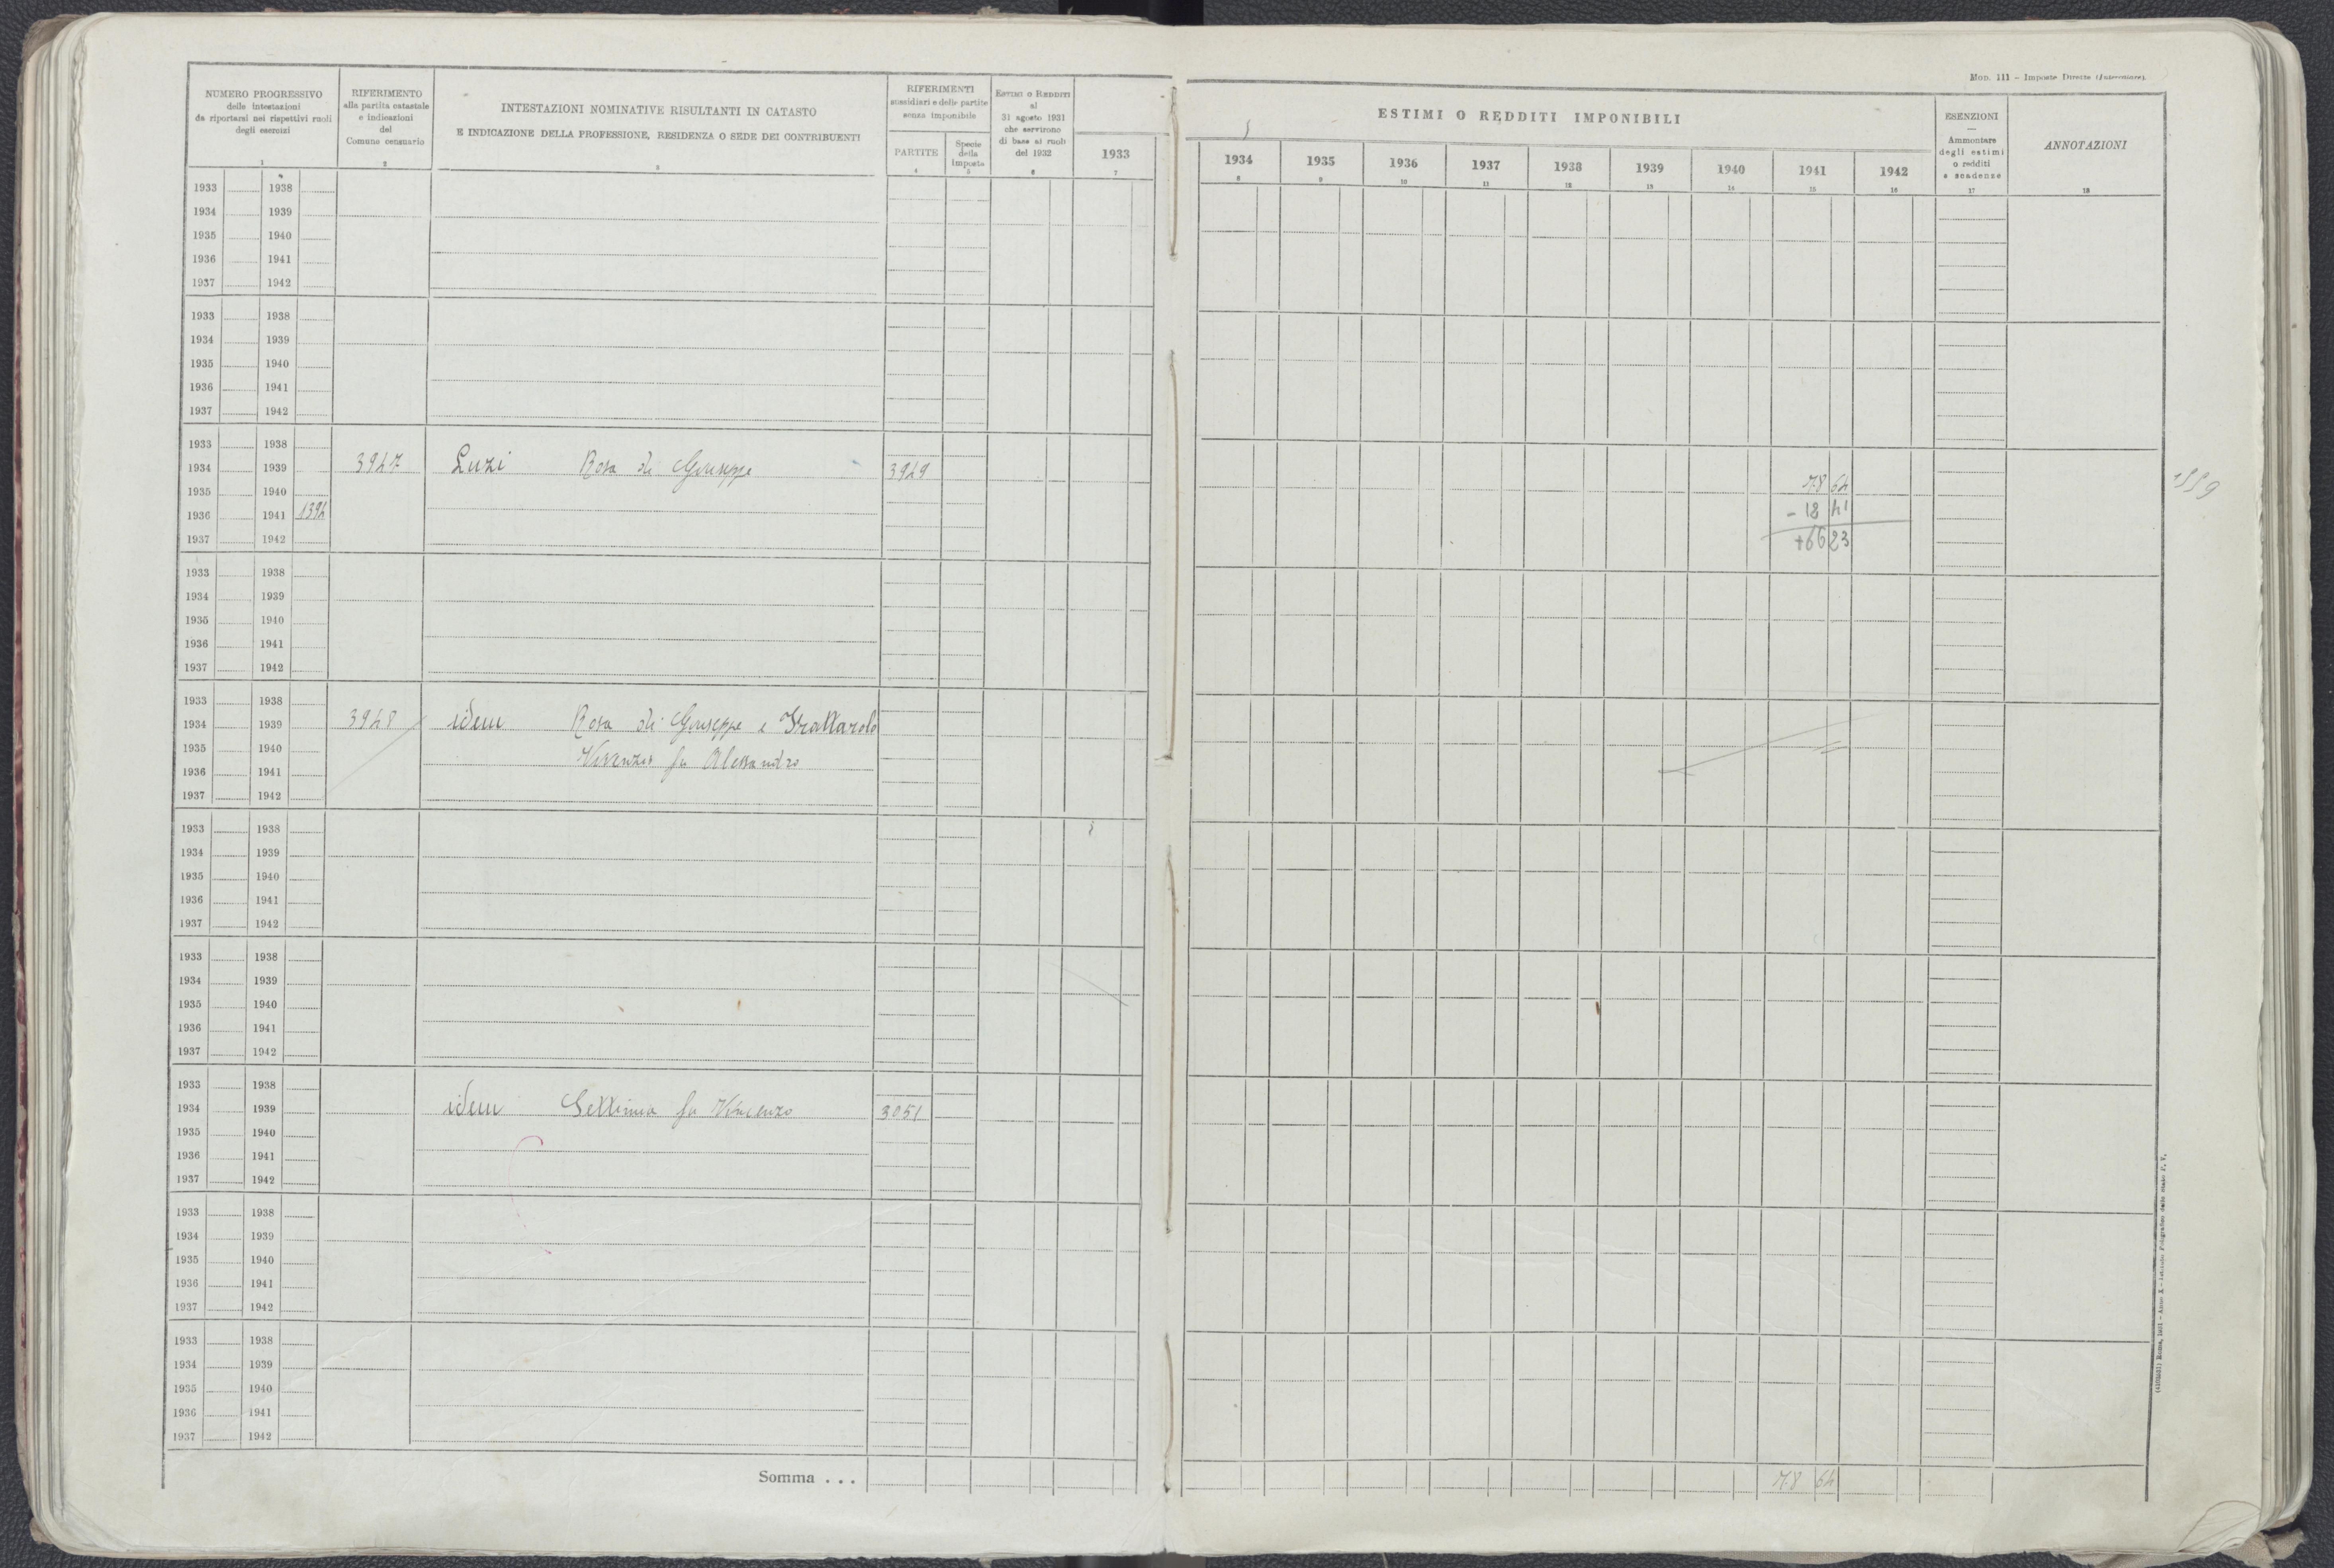 Mod. 111 – Imposte Dirette (Intercalare).
NUMERO PROGRESSIVO
delle intestazioni
da riportarsi nei rispettivi ruoli
degli esercizi
1
RIFERIMENTO
alla partita catastale
e indicazioni
del
Comune censuario
2
INTESTAZIONI NOMINATIVE RISULTANTI IN CATASTO
E INDICAZIONE DELLA PROFESSIONE, RESIDENZA O SEDE DEI CONTRIBUENTI
3
RIFERIMENTI
sussidiari e delle partite
senza imponibile
PARTITE
4
Specie
della
imposta
5
Estimi o Redditi
al
31 agosto 1931
che servirono
di base ai ruoli
del 1932
6
1933
7
ESTIMI O REDDITI IMPONIBILI
1934 1935 1936 1937 1938 1939 1940 1941 1942
8 9 10 11 12 13 14 15 16
ESENZIONI
—
Ammontare
degli estimi
o redditi
e scadenze
17
ANNOTAZIONI
18
1933 1938
1934 1939
1935 1940
1936 1941
1937 1942
1933 1938
1934 1939
1935 1940
1936 1941
1937 1942
1933 1938
1934 1939 3947 Luzi Rosa di Giuseppe 3949
1935 1940 78 64
1936 1941 1394 - 12 41
1937 1942 +66 23
1933 1938
1934 1939
1935 1940
1936 1941
1937 1942
1933 1938
1934 1939 3948 idem Rosa di Giuseppe e Frattarolo
1935 1940 Vincenzo fu Alessandro
1936 1941
1937 1942
1933 1938
1934 1939
1935 1940
1936 1941
1937 1942
1933 1938
1934 1939
1935 1940
1936 1941
1937 1942
1933 1938
1934 1939 idem Settimia fu Vincenzo 3051
1935 1940
1936 1941
1937 1942
1933 1938
1934 1939
1935 1940
1936 1941
1937 1942
1933 1938
1934 1939
1935 1940
1936 1941
1937 1942
Somma . . . 78 64